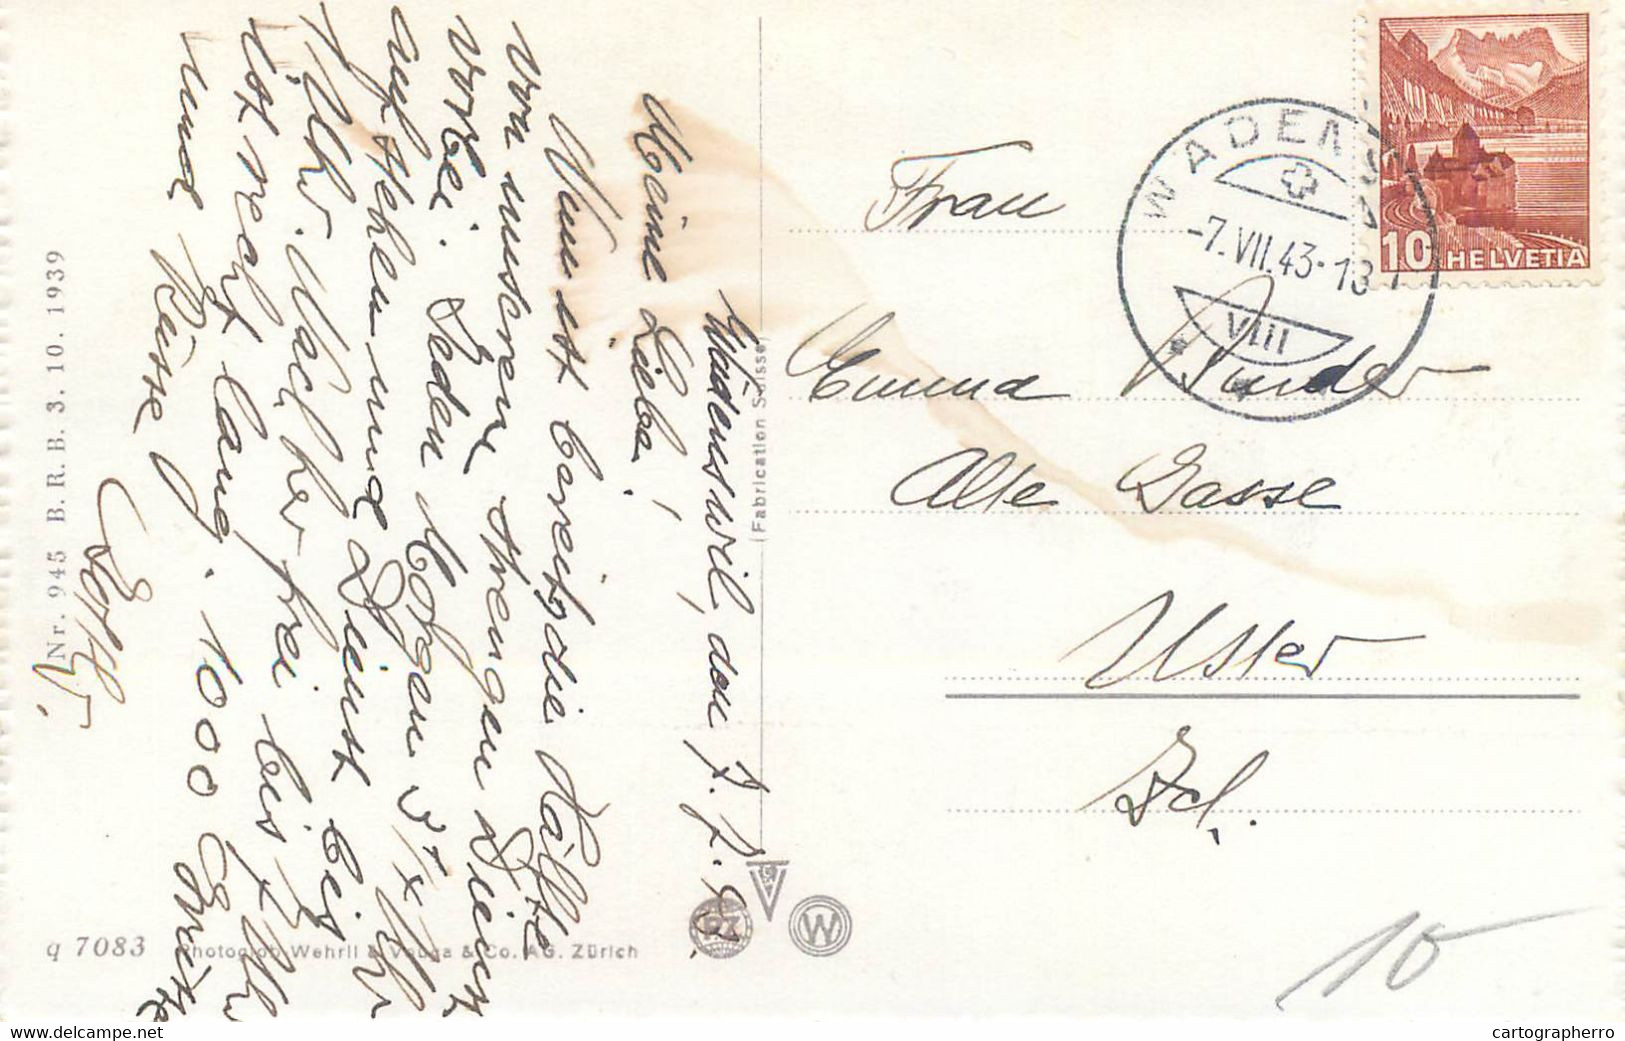 Wädenswil, den 7. 7. 43.
Meine Liebe!
Nun ist bereits die Hälfte
von unserem strengen Dienst
vorbei. Jeden Morgen 5 Uhr
aufstehen und Dienst bis
Uhr. Nachher frei bis Uhr
ist recht lang. 1000 Grüsse
und Küsse
Nr. 945 B. R. B. 3. 10. 1939
q 7083
Photoglob-Wehrli & Vouga & Co. AG. Zürich
(Fabrication Suisse)
PZ
V
W
Frau
Emma
Alte Gasse
Uster
Zch.
WÄDENSWIL
-7.VII.43-18
VIII
10 HELVETIA
10
www.delcampe.net
cartographerro